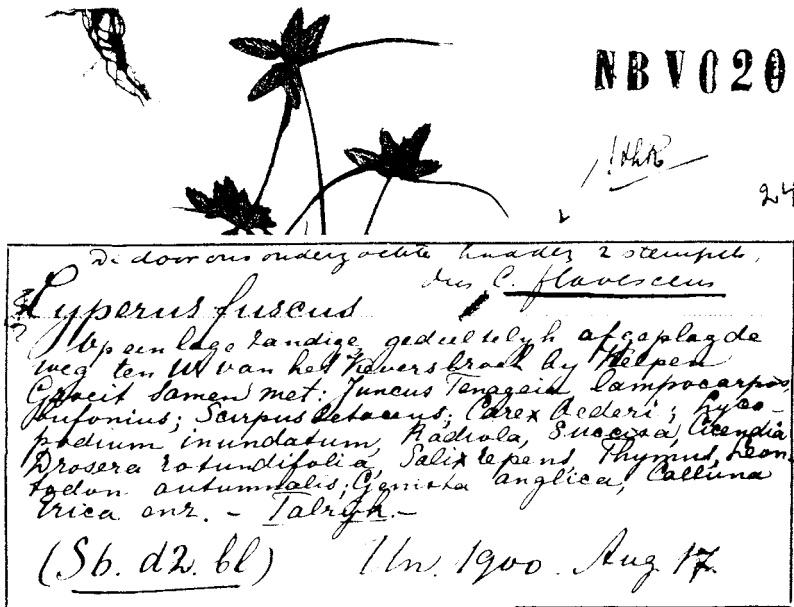 NBV020
24
De door ons onderzochte hadden 2 stempels,
dus C. flavescens
Cyperus fuscus
Op een lage zandige, gedeeltelyk afgeplagde
weg ten W van het Keversbroek by Kelpen
Groeit samen met: Juncus Tenageia lampocarpos,
bufonius; Scirpus setaceus; Carex Oederi; Lyco-
podium inundatum, Radiola, Succisa, Cicendia
Drosera rotundifolia, Salix repens, Thymus, Leon-
todon autumnalis; Genista anglica, Calluna
Erica enz. - Talryk. -
(Sb. d2. bl) Un. 1900. Aug 17.